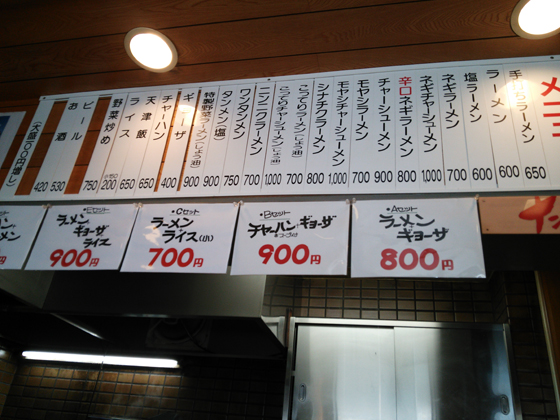 メニ
手りラーメン 650
ラーメン 600
塩ラーメン 600
ネギラーメン 700
ネギチャーシューメン 1,000
辛口ネギラーメン 800
チャーシューメン 900
モヤシラーメン 700
モヤシチャーシューメン 1,000
シナチクラーメン 800
こってりラーメン(じょう油) 700
こってりチャーシューメン(じょう油) 1,000
ニンニクラーメン 700
ワンタンメン 750
タンメン(塩) 900
特製野菜ラーメン(じょう油) 900
ギョーザ 400
チャーハン 650
天津飯 650
ライス 小150 200
野菜炒め 750
ビール 530
お酒 420
(大盛100円増)
・Aセット
ラーメン
ギョーザ
800円
・Bセット
チャーハン・ギョーザ
900円
・Cセット
ラーメン
ライス(小)
700円
ラーメン
ギョーザ
ライス
900円
円